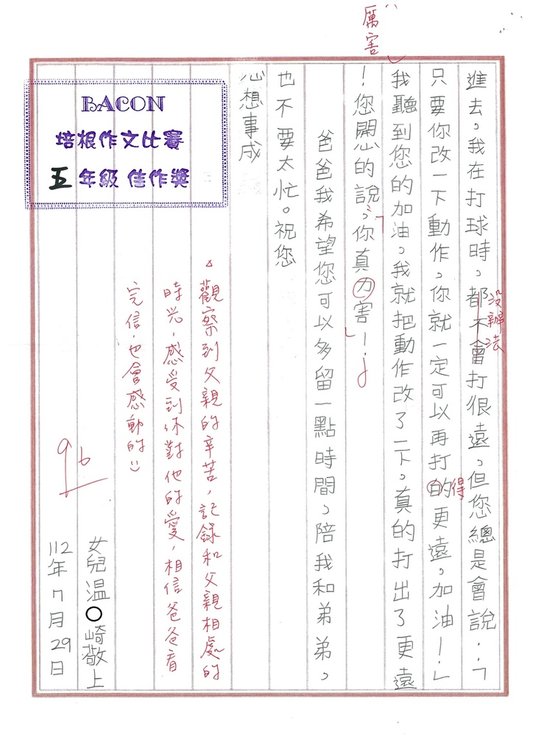 進去。我在打球時，都不會打很遠。但您總是會說：「
只要你改一下動作，你就一定可以再打的更遠。加油！」
我聽到您的加油，我就把動作改了一下。真的打出了更遠
！您開心的說：「你真力害！」
爸爸我希望您可以多留一點時間，陪我和弟弟。
也不要太忙。祝您
心想事成
厲害
沒辦法
得
BACON
培根作文比賽
五年級 佳作獎
觀察到父親的辛苦，記錄和父親相處的
時光，感受到你對他的愛，相信爸爸看
完信，也會感動的:)
96
女兒温○崎敬上
112年7月29日